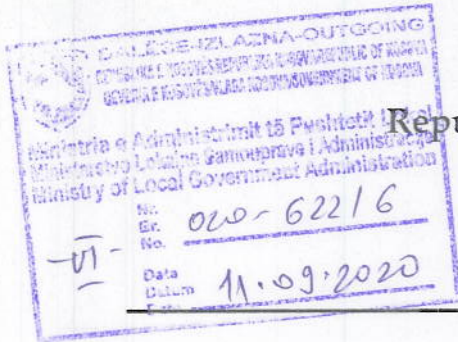 DALËSE-IZLAZNA-OUTGOING
Ministria e Administrimit të Pushtetit Lokal
Ministarstvo Lokalne Samouprave i Administracije
Ministry of Local Government Administration
Repu
Nr.
Br.
No.
020-622/6
-VI-
Data
Datum
11.09.2020